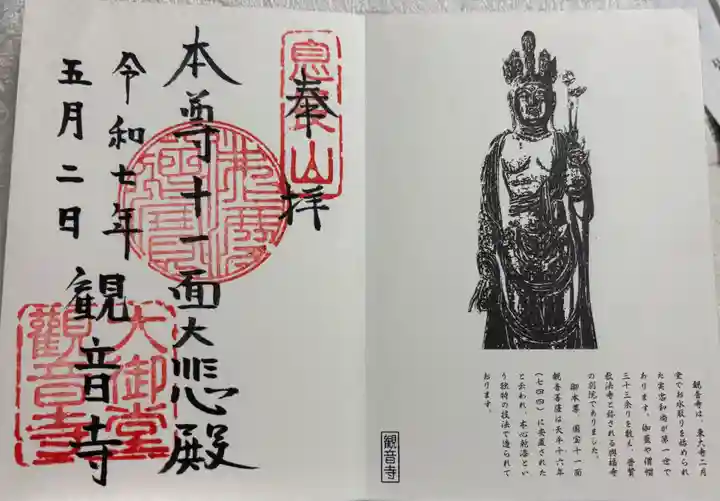 奉拝
本尊十一面大悲殿
令和七年
五月二日
観音寺
息長山
大御堂
觀音寺
観音寺は、東大寺二月
堂でお水取りを始められ
た実忠和尚が第一世で
あります。伽藍や僧坊
三十三余りを数え、普賢
教法寺と称される興福寺
の別院でありました。
御本尊、国宝十一面
観音菩薩は天平十六年
(七四四)に安置された
と云われ、木心乾漆とい
う独特の技法で造られて
おります。
観音寺